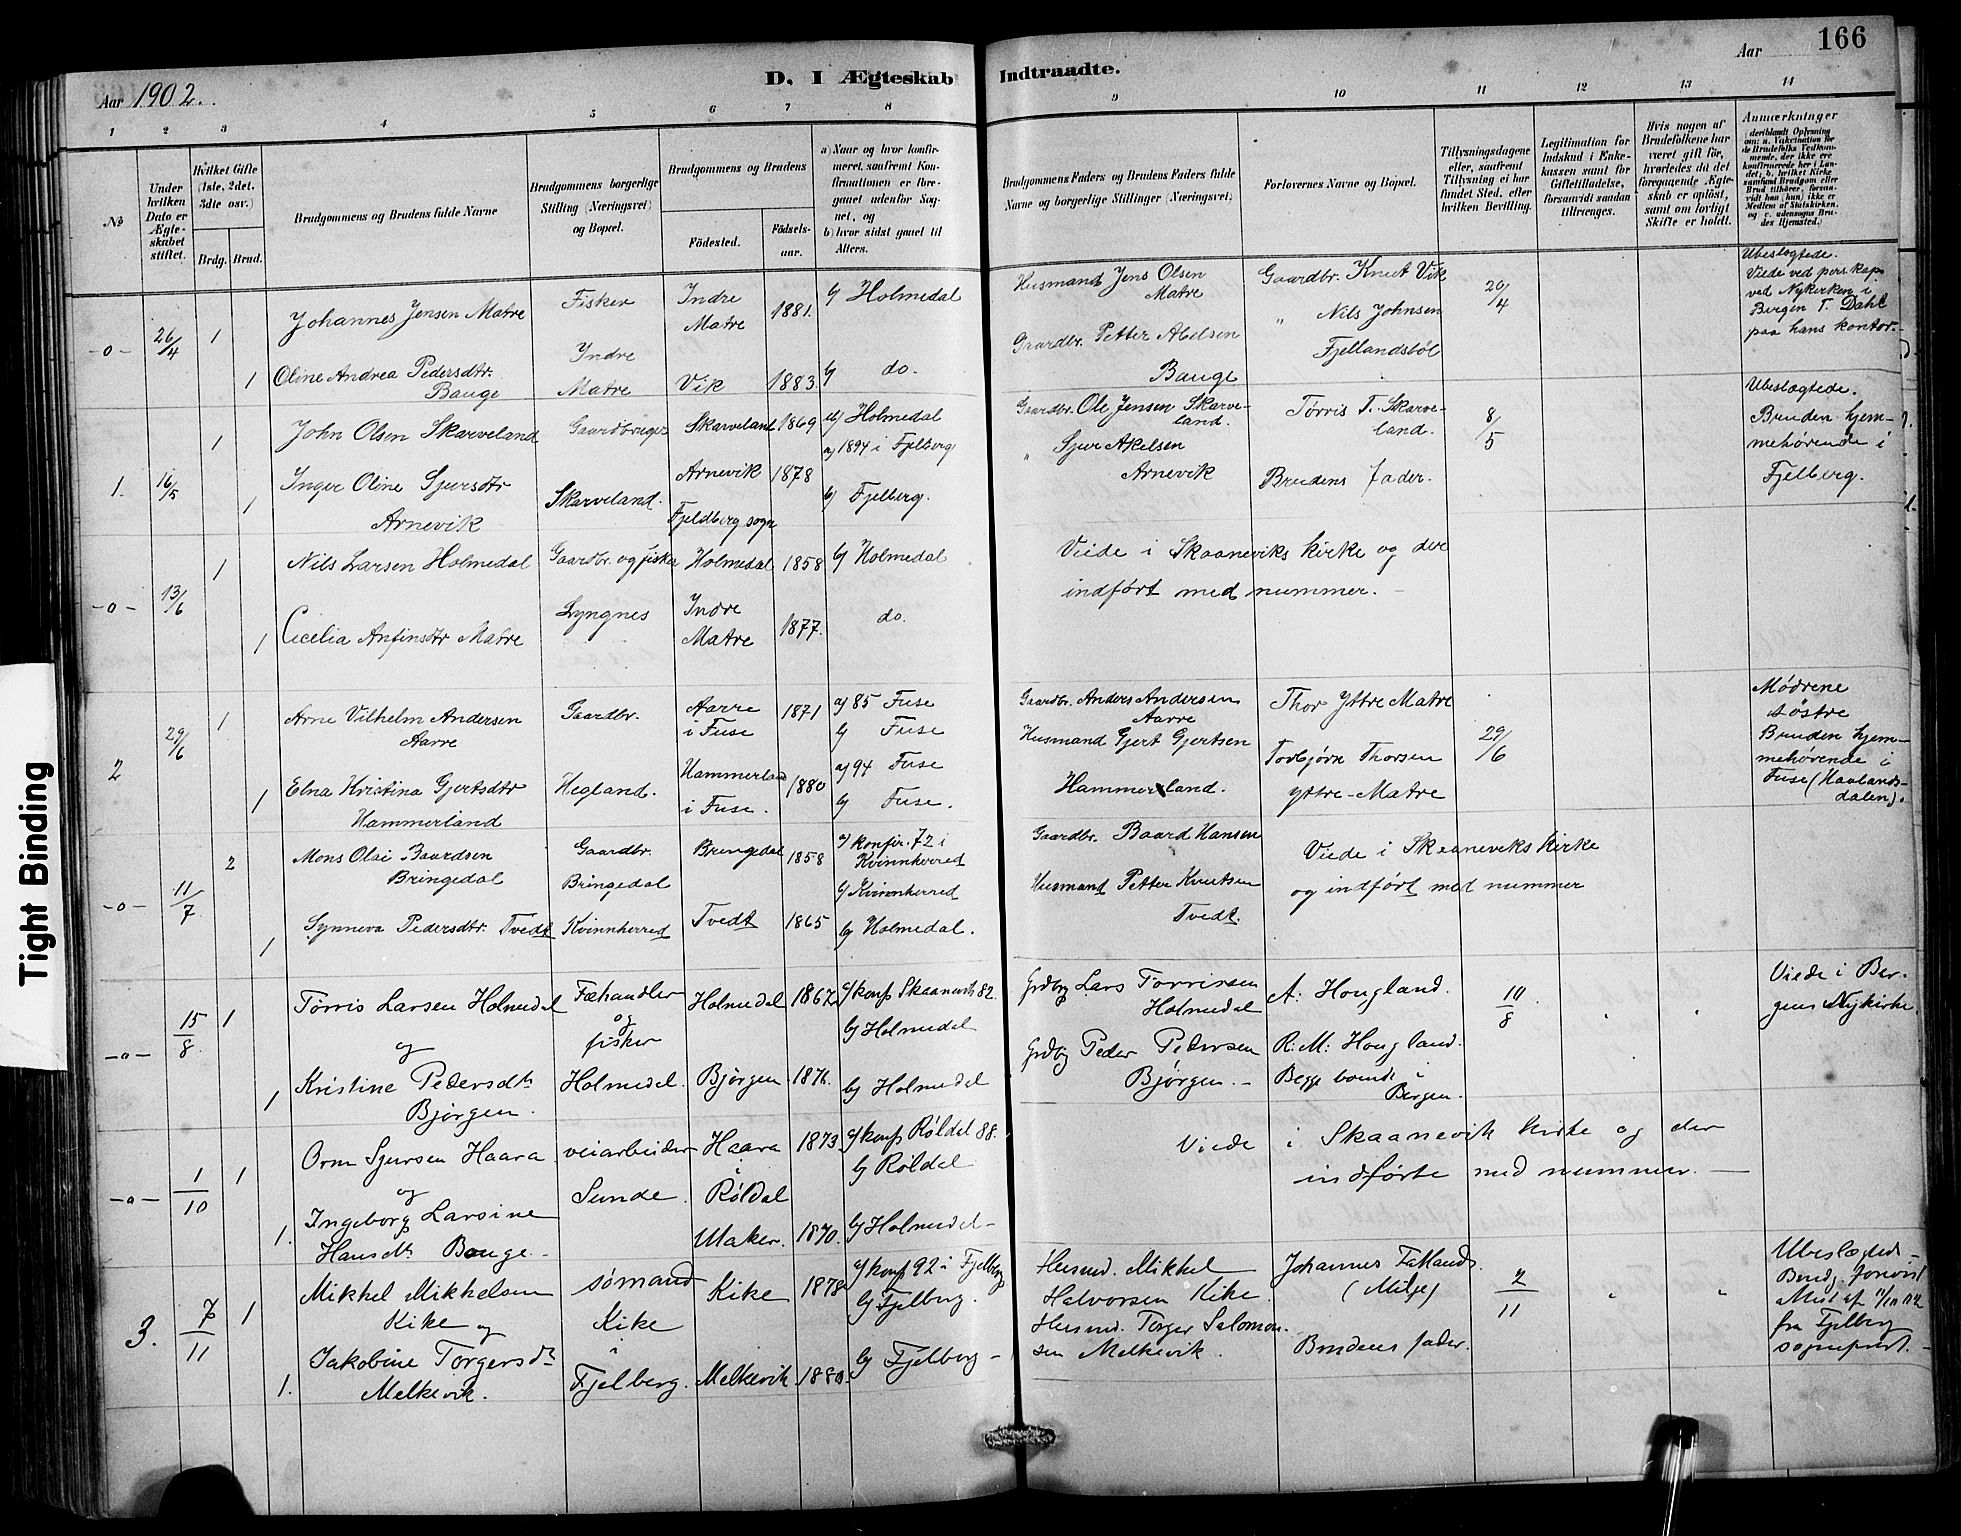 Aar 1902.
D. I Ægteskab Indtraadte.
Aar 166
1 2 3 4 5 6 7 8 9 10 11 12 13 14
No
Under hvilken Dato er Ægteskabet stiftet.
Hvilket Gifte (1ste, 2det, 3die osv.)
Brdg. Brud.
Brudgommens og Brudens fulde Navne
Brudgommens borgerlige Stilling (Næringsvei) og Bopæl.
Brudgommens og Brudens
Födested.
Födsels-aar.
a) Naar og hvor konfirmeret, saafremt Konfirmationen er foregaaet udenfor Sognet, og
b) hvor sidst gaaet til Alters.
Brudgommens Faders og Brudens Faders fulde Navne og borgerlige Stillinger (Næringsvei)
Forlovernes Navne og Bopæl.
Tillysningsdagene eller, saafremt Tillysning ei har fundet Sted, efter hvilken Bevilling.
Legitimation for Indskud i Enkekassen samt for Giftetilladelse, forsaavidt saadan tiltrænges.
Hvis nogen af Brudefolkene har været gift før, hvorledes da det foregaaende Ægteskab er opløst, samt om lovligt Skifte er holdt.
Anmærkninger
-o-
26/4
1
Johannes Jensen Matre
Fisker
Indre Matre
1881.
b) Holmedal
Husmand Jens Olsen Matre
Gaardbr. Knut Vik
20/4
Ubeslægtede.
Viede ved pers. kap.
ved Nykirken i
Bergen T. Dahl
paa hans kontor.-
1
Oline Andrea Pedersdtr. Bauge
Indre Matre
Vik
1883.
b) do.
Gaardbr. Petter Abelsen Bauge
" Nils Johnsen Fjellandsböl
1.
16/5
1
John Olsen Skarveland
Gaardbruger
Skarveland
1869
b) Holmedal
Gaardbr. Ole Jensen Skarve-
land.
Tørris T. Skarve-
land.
8/5
Ubeslægtede.
Bruden hjem-
mehørende i
Fjelberg.
1
Inger Oline Sjursdtr Arnevik
Skarveland.
Arnevik
Fjeldberg sogn
1878
a) 1894 i Fjelberg
b) Fjelberg.
" Sjur Akelsen Arnevik
Brudens fader.
-o-
13/6
1
Nils Larsen Holmedal
Gaardbr. og fisker
Holmedal
1858
b) Holmedal
Viede i Skaaneviks kirke og der
indført med nummer. -
1
Cecelia Anfinsdtr Matre
Lyngnes
Indre Matre
1877.
do.
2
29/6
1
Arne Vilhelm Andersen Aarre
Gaardbr.
Aarre i Fuse
1871
a) 85 Fuse
b) Fuse
Gaardbr. Anders Andersen Aarre
Thor Yttre Matre
29/6
Mødrene
søstre
Bruden hjem-
mehørende i
Fuse (Havlands-
dalen).
1
Elna Kristina Gjertsdtr Hammerland
Hegland.
Hammerland i Fuse.
1880
a) 94 Fuse
b) Fuse.
Husmand Gjert Gjertsen Hammerland.
Torbjørn Thorsen Yttre-Matre
-o-
11/7
2
Mons Olai Baardsen Bringedal
Gaardbr. Bringedal
Bringedal
1858
a) konfir. 72 i Kvinnherred
b) Kvinnherred
Gaardbr. Baard Hansen
Viede i Skaaneviks kirke
og indført med nummer
1
Synneva Pedersdtr. Tvedt
Kvinnherred
Tvedt
1865
b) Holmedal.
Husmand Petter Knutsen Tvedt.
-o-
15/8
1
Tørris Larsen Holmedal
og
Fæhandler og fisker
Holmedal
1867
a) konf Skaanevik 82.
b) Holmedal
Grdbrg Lars Tørrissen Holmedal
A: Hougland.
10/8
Viede i Ber-
gens Nykirke.
1
Kristine Pedersdtr Bjørgen.
Holmedal.
Bjørgen.
1876.
b) Holmedal
Grdbrg Peder Pedersen Bjørgen. -
R: M: Hougland.
Begge boende i Bergen.
-o-
1/10
1
Orm Sjursen Haara
og
veiarbeider
Sunde.
Haara i Røldal
1873
a) konf Røldal 88.
b) Røldal
Viede i Skaanevik kirke og der
indførte med nummer. -
1.
Ingeborg Larsine
Hansdtr Bauge -
Utaker.
1870.
b) Holmedal -
3.
7/11
1
Mikkel Mikkelsen
Kike og
sømand
Kike
i
Fjelberg.
Kike
1878
a) konf 92 i Fjelberg
b) Fjelberg.
Husmd. Mikkel
Halvorsen Kike.
Johannes Fatland.
(Milje)
2/11
Ubeslægted-
fra Fjelberg
sogneprest. -
1.
Jakobine Torgersdtr
Melkevik.
Melkevik.
b) Fjelberg -
Husmd. Torger Salomon-
sen Melkevik.
Brudens fader.
Tight Binding